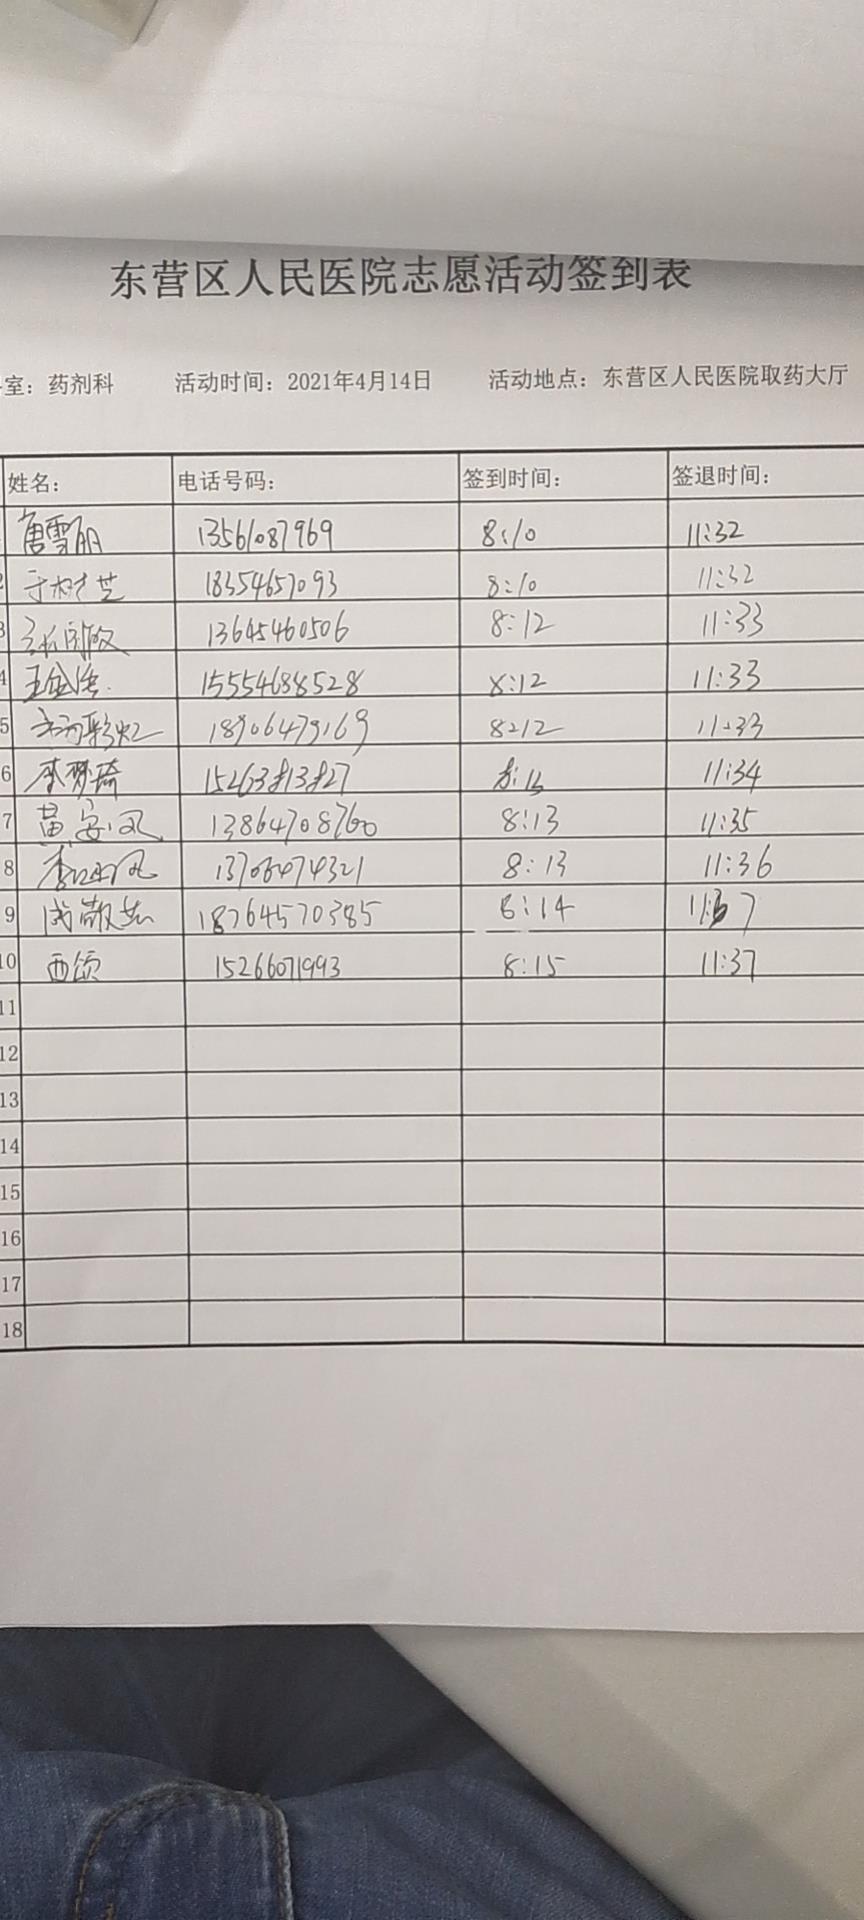 东营区人民医院志愿活动签到表
室：药剂科 活动时间：2021年4月14日 活动地点：东营区人民医院取药大厅
姓名： 电话号码： 签到时间： 签退时间：
唐雪丽 13561087969 8:10 11:32
2 于树芝 18354657093 8:10 11:32
3 13645460506 8:12 11:33
4 15554688528 8:12 11:33
5 18906479169 8:12 11:33
6 李梦琦 15263813827 8:13 11:34
7 黄安凤 13864708760 8:13 11:35
8 13706474321 8:13 11:36
9 18764570385 8:14 11:37
10 西颂 15266071993 8:15 11:37
11
12
13
14
15
16
17
18